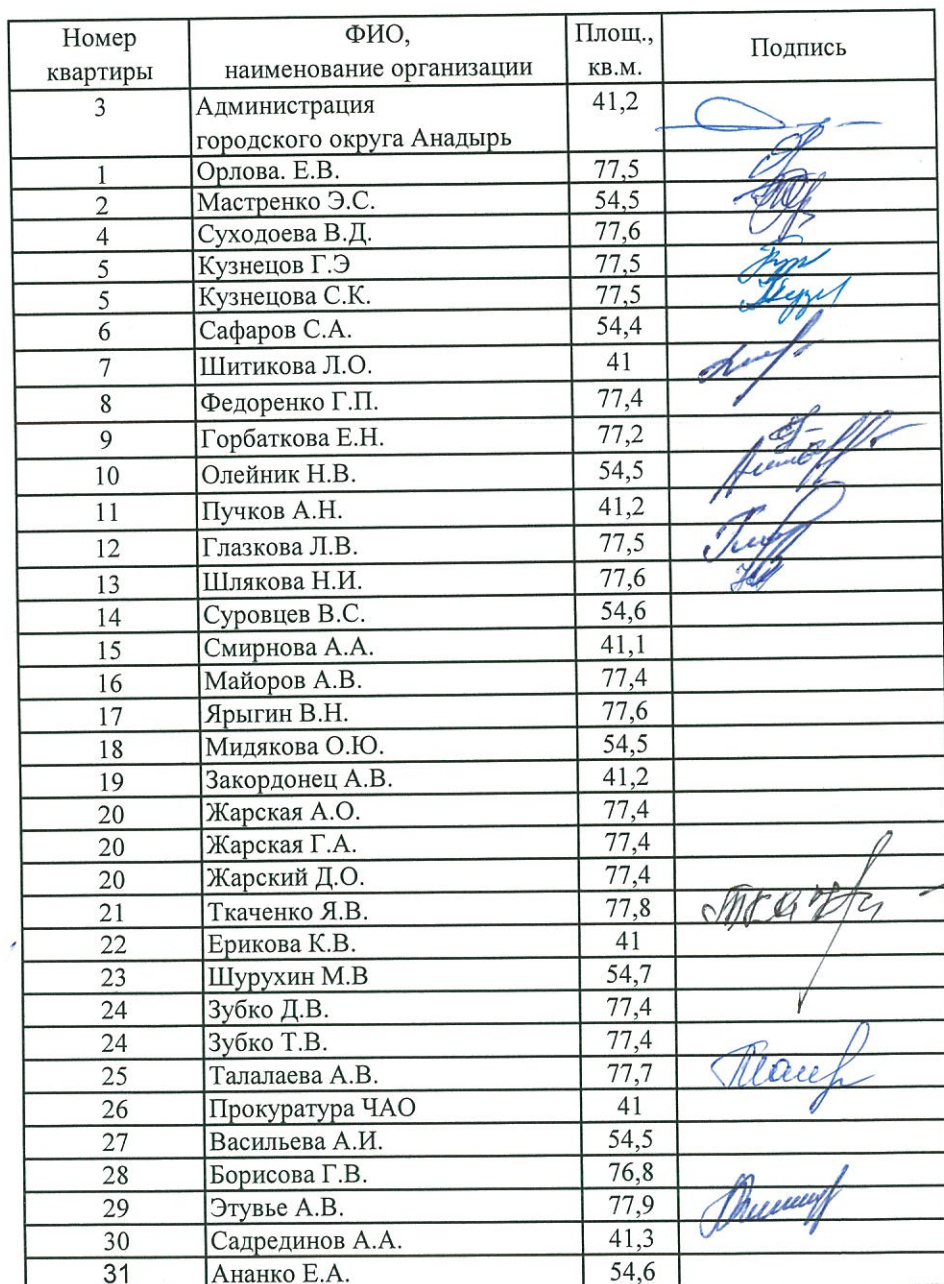 Номер квартиры ФИО, наименование организации Площ., кв.м. Подпись
3 Администрация городского округа Анадырь 41,2
1 Орлова. Е.В. 77,5
2 Мастренко Э.С. 54,5
4 Суходоева В.Д. 77,6
5 Кузнецов Г.Э 77,5
5 Кузнецова С.К. 77,5
6 Сафаров С.А. 54,4
7 Шитикова Л.О. 41
8 Федоренко Г.П. 77,4
9 Горбаткова Е.Н. 77,2
10 Олейник Н.В. 54,5
11 Пучков А.Н. 41,2
12 Глазкова Л.В. 77,5
13 Шлякова Н.И. 77,6
14 Суровцев В.С. 54,6
15 Смирнова А.А. 41,1
16 Майоров А.В. 77,4
17 Ярыгин В.Н. 77,6
18 Мидякова О.Ю. 54,5
19 Закордонец А.В. 41,2
20 Жарская А.О. 77,4
20 Жарская Г.А. 77,4
20 Жарский Д.О. 77,4
21 Ткаченко Я.В. 77,8
22 Ерикова К.В. 41
23 Шурухин М.В 54,7
24 Зубко Д.В. 77,4
24 Зубко Т.В. 77,4
25 Талалаева А.В. 77,7
26 Прокуратура ЧАО 41
27 Васильева А.И. 54,5
28 Борисова Г.В. 76,8
29 Этувье А.В. 77,9
30 Садрединов А.А. 41,3
31 Ананко Е.А. 54,6